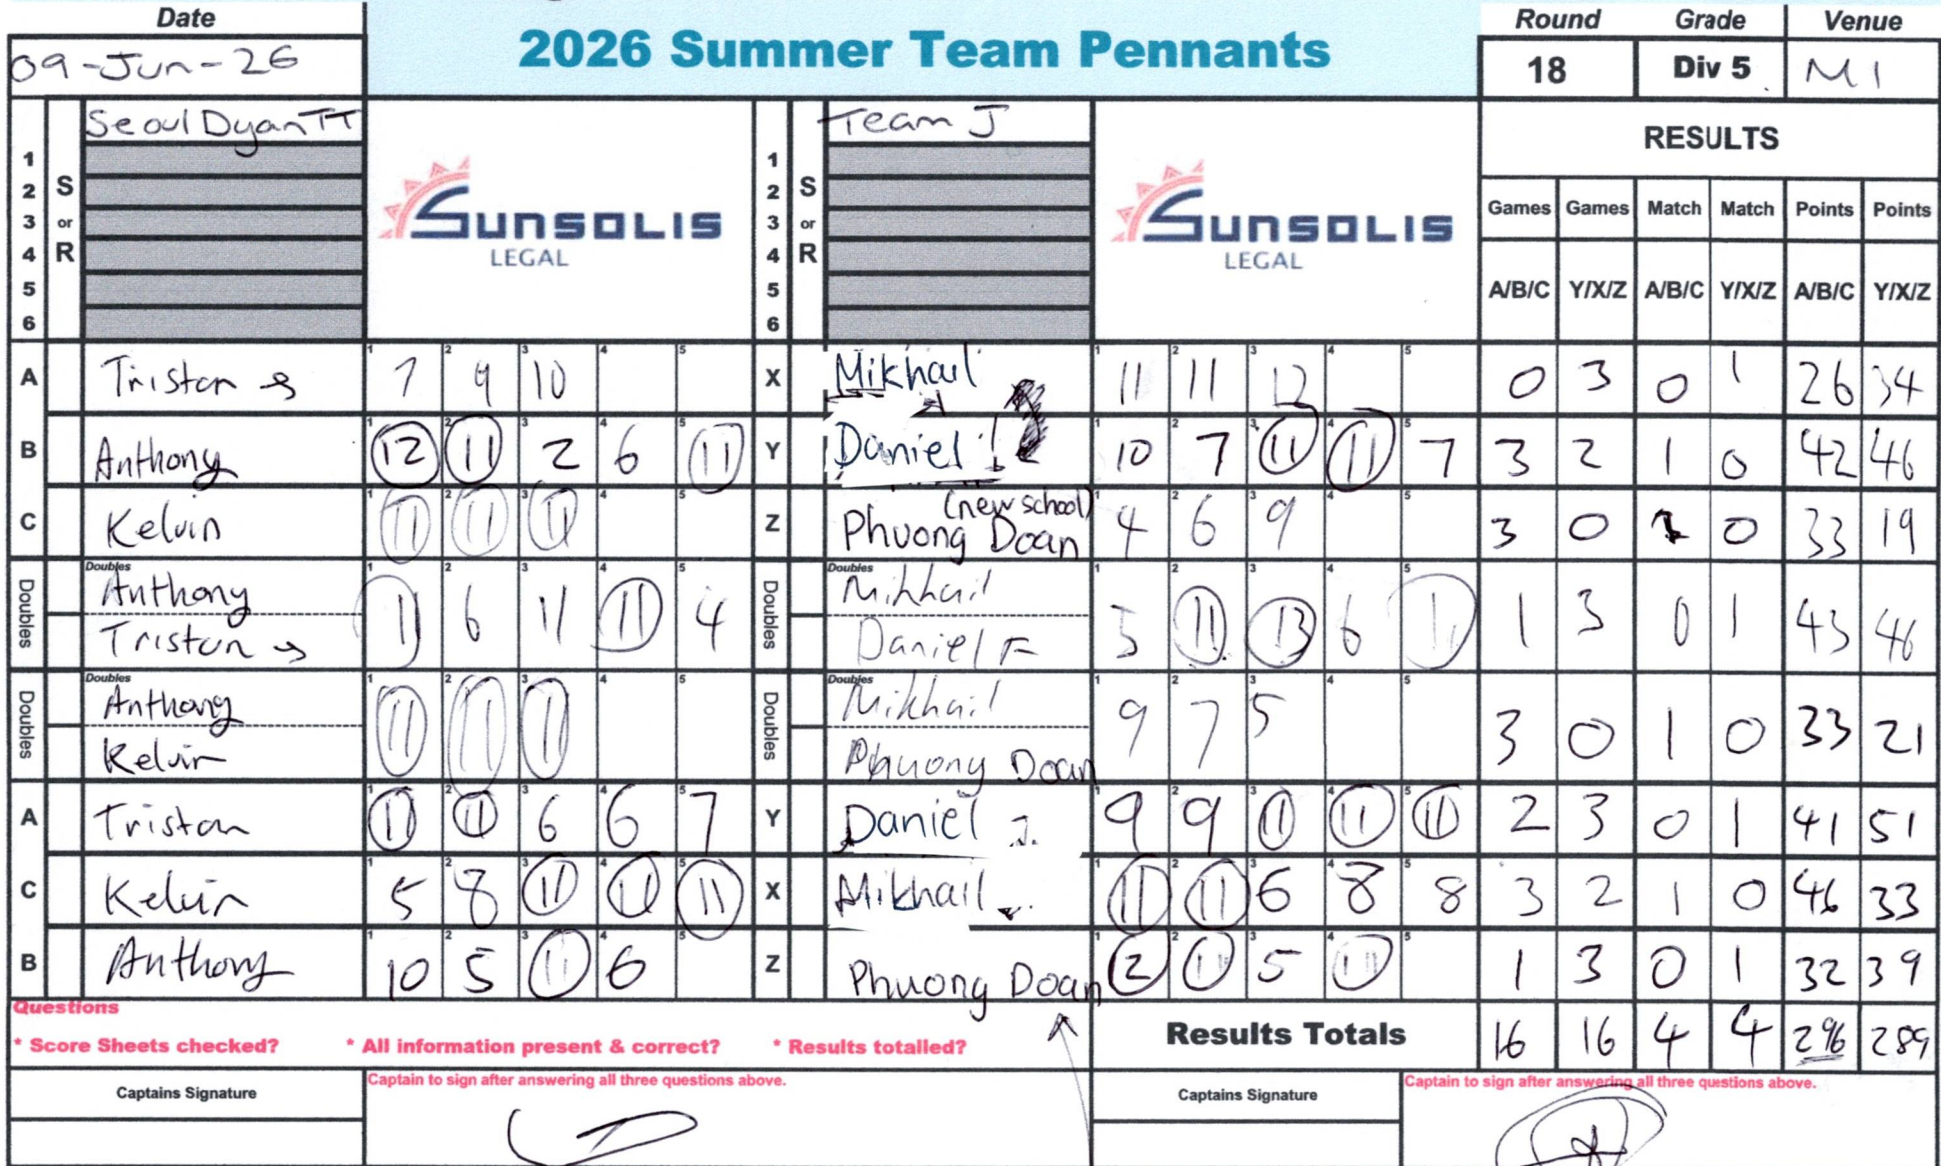 Date
09-Jun-26
2026 Summer Team Pennants
Round Grade Venue
18 Div 5 M1
Seoul Dyan TT
Team J
RESULTS
1 2 3 4 5 6
S or R
SUNSOLIS
LEGAL
1 2 3 4 5 6
S or R
SUNSOLIS
LEGAL
Games Games Match Match Points Points
A/B/C Y/X/Z A/B/C Y/X/Z A/B/C Y/X/Z
A Tristan 7 9 10 X Mikhail 11 11 12 0 3 0 1 26 34
B Anthony 12 11 2 6 11 Y Daniel 10 7 11 11 7 3 2 1 0 42 46
C Kelvin 11 11 11 Z (new school) Phuong Doan 4 6 9 3 0 1 0 33 19
Doubles Anthony Doubles Mikhail
Tristan 11 6 11 11 4 Daniel F 5 11 13 6 11 1 3 0 1 43 46
Doubles Anthony Doubles Mikhail
Kelvin 11 11 11 Phuong Doan 9 7 5 3 0 1 0 33 21
A Tristan 11 11 6 6 7 Y Daniel J. 9 9 11 11 11 2 3 0 1 41 51
C Kelvin 5 8 11 11 11 X Mikhail 11 11 6 8 8 3 2 1 0 46 33
B Anthony 10 5 11 6 Z Phuong Doan 12 11 5 11 1 3 0 1 32 39
Questions
* Score Sheets checked? * All information present & correct? * Results totalled?
Results Totals 16 16 4 4 296 289
Captains Signature
Captain to sign after answering all three questions above.
Captains Signature
Captain to sign after answering all three questions above.